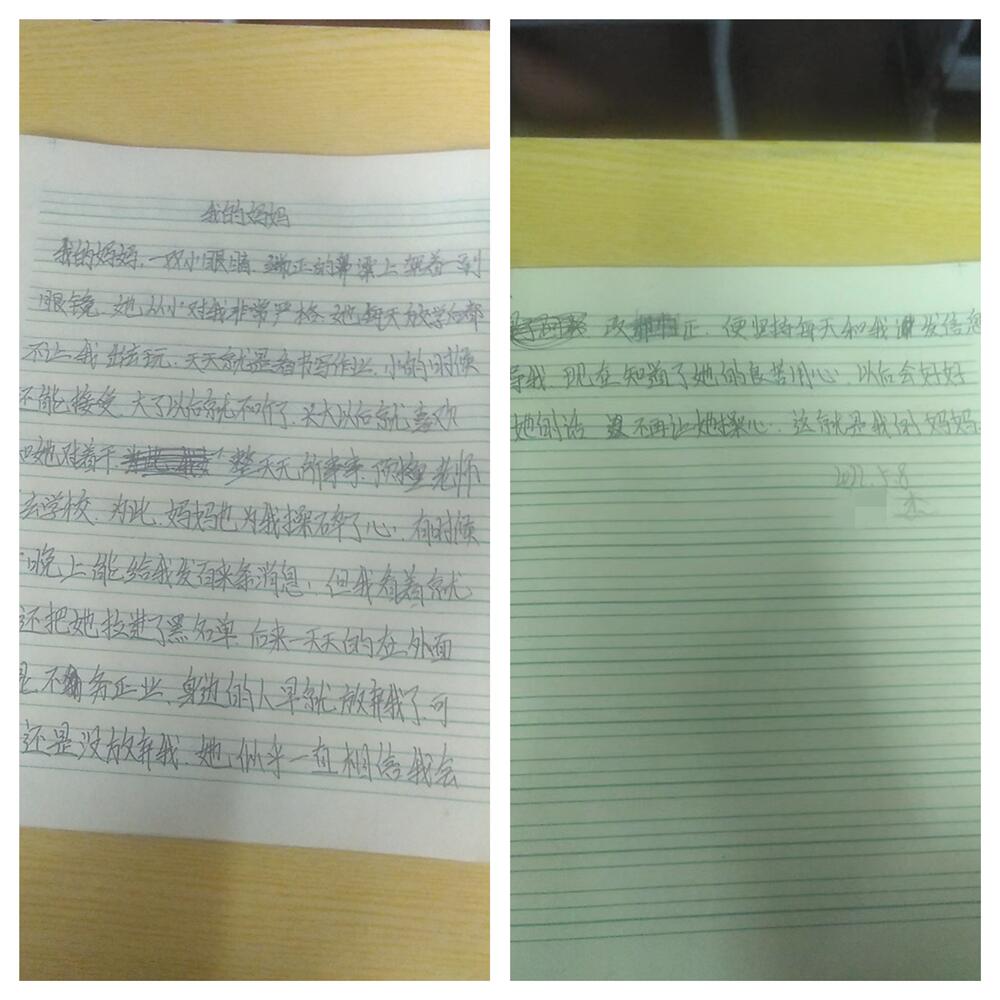 我的妈妈
我的妈妈,一双小眼睛,端正的鼻梁上架着一副
眼镜,她从小对我非常严格,她每天放学后都
不让我出去玩,天天就是看书写作业,小的时候
不能接受,大了以后就不听了,长大以后就喜欢
她对着干,整天无所事事,顶撞老师
去学校,为此,妈妈也为我操碎了心,有时候
晚上能给我发百来条消息,但我看着就
还把她拉进了黑名单,后来一天天的在外面
不务正业,身边的人早就放弃我了,可
还是没放弃我,她似乎一直相信我会
改正,便坚持每天和我发信息
导我,现在知道了她的良苦用心,以后会好好
她的话 不再让她操心,这就是我的妈妈.
2022.5.8